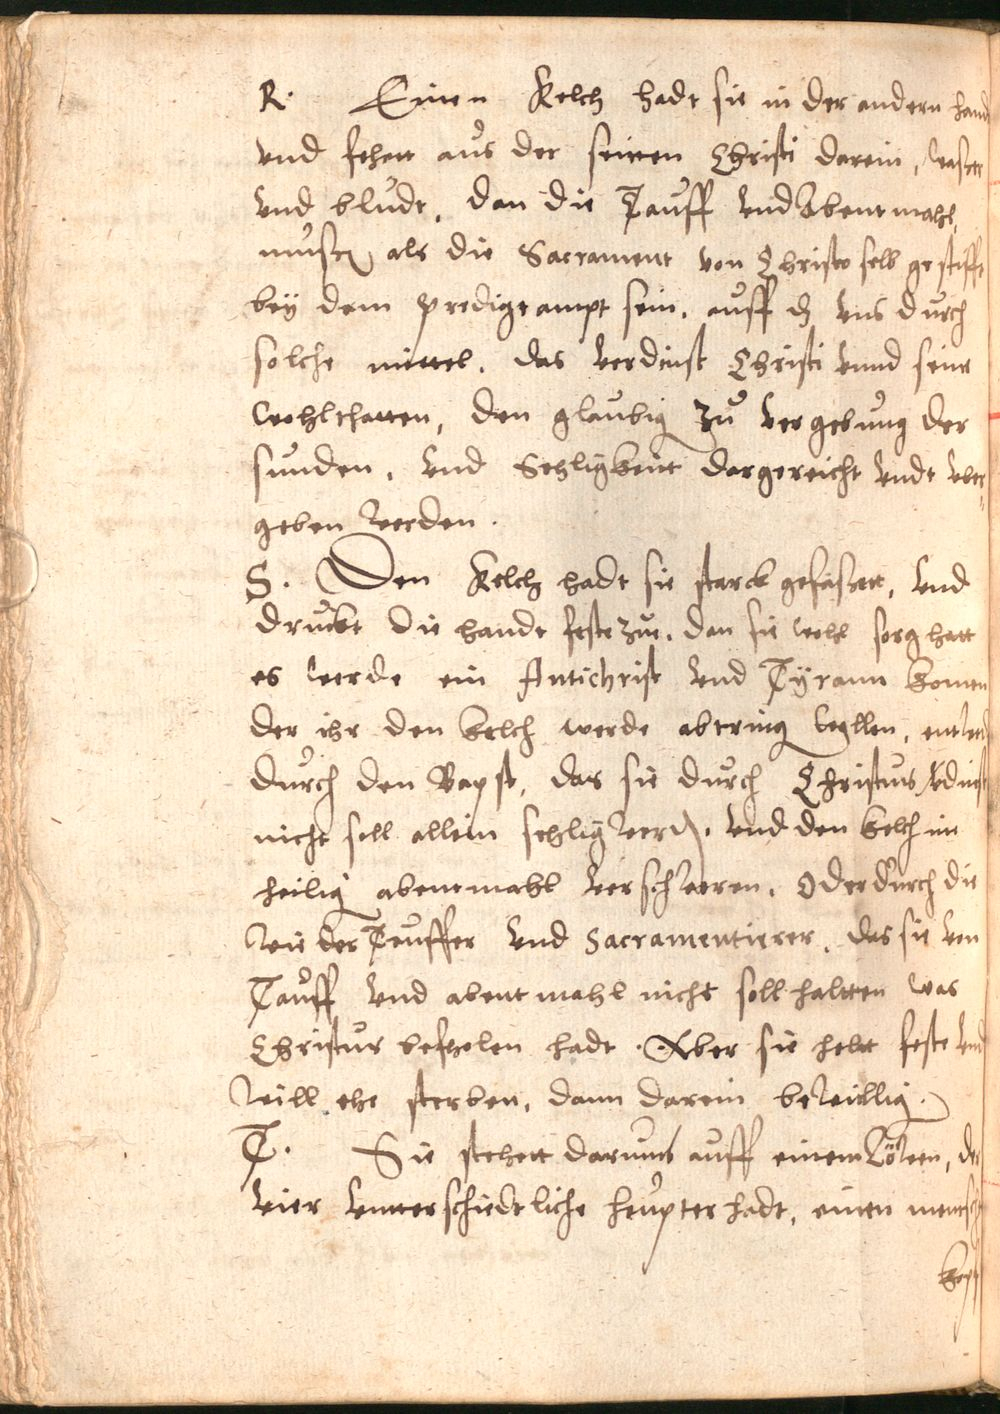 R. Einen Kelch hadt sie in der andern hand
vnd fehett aus der seitten Christi darein, wasser
vnd bludt, dan die Tauff vnd Abentmahl,
mussen als die Sacrament von Christo selb gestifft
bey dem predigtampt sein, auff dz vns durch
solche mittel, das verdinst Christi vnnd seine
wohlthatten, den glaubig zu vergebung der
sunden, vnd Sehligkeit dargereicht vndt vber=
geben werden.
S. Den Kelch hadt sie starck gefasset, vnd
druckt die handt feste zu, dan sie wohl sorg hatt
es werde ein Antichrist vnd Tyrann komen
der ihr den kelch werde abtring wollen, entwed
durch den Bapst, das sie durch Christus vdinst
nicht soll allein sehlig werden, vnd den kelch im
heilig abentmahl verschweren, Oder durch die
wieder Teuffer vnd Sacramentierer, das sie von
Tauff vnd abentmahl nicht soll haltten was
Christus befholen hadt. Aber sie helt feste vnd
will ehe sterben, dann darein bewillig.
T. Sie stehett darumb auff einem Löwen, der
vier vnterschiedtliche heupter hadt, einen mensch
kopff